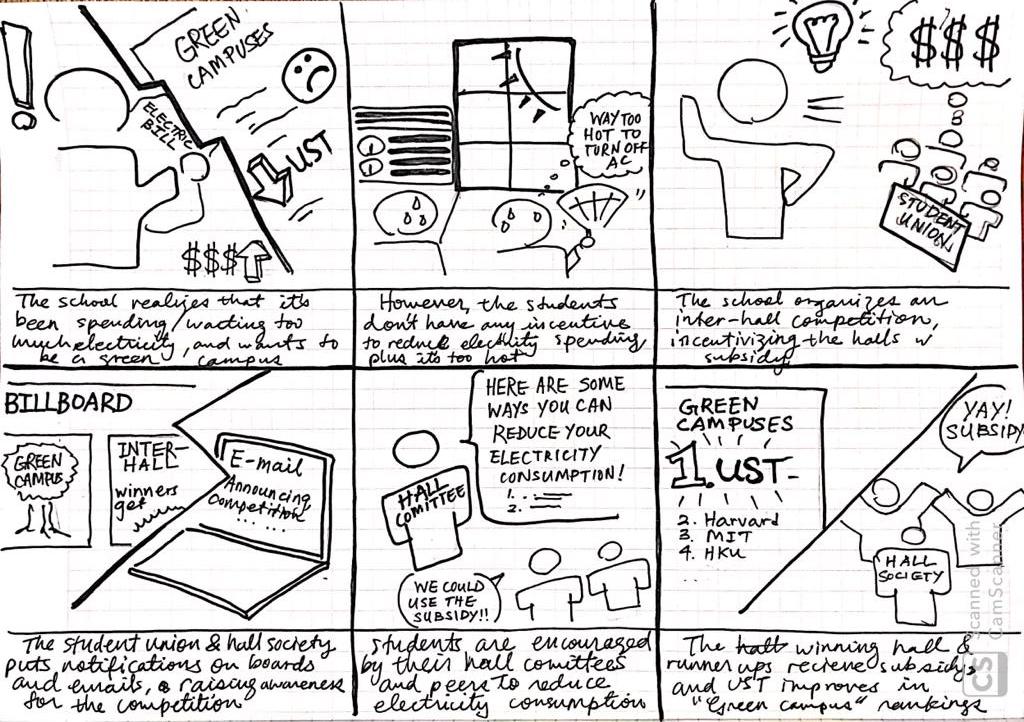 GREEN
CAMPUSES
ELECTRIC
BILL
UST
$$$
The school realizes that it's
been spending/wasting too
much electricity, and wants to
be a green campus
WAY TOO
HOT TO
TURN OFF
AC
However, the students
don't have any incentive
to reduce electricity spending
plus it's too hot
$$$
STUDENT
UNION
The school organizes an
inter-hall competition,
incentivizing the halls w
subsidy
BILLBOARD
GREEN
CAMPUS
INTER-
HALL
winners
get
E-mail
Announcing
Competition
......
The student union & hall society
puts notifications on boards
and emails, raising awareness
for the competition
HERE ARE SOME
WAYS YOU CAN
REDUCE YOUR
ELECTRICITY
CONSUMPTION!
1.
2.
HALL
COMITTEE
WE COULD
USE THE
SUBSIDY!!
students are encouraged
by their hall comittees
and peers to reduce
electricity consumption
GREEN
CAMPUSES
1. UST
2. Harvard
3. MIT
4. HKU
YAY!
SUBSIDY
HALL
SOCIETY
The winning hall &
runner ups recieve subsidys
and UST improves in
"Green campus" rankings
CS
Scanned with
CamScanner